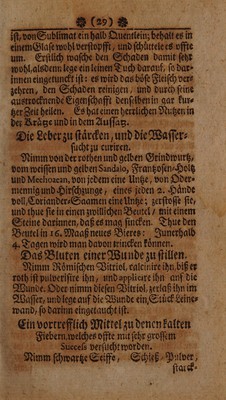 (29)
ist, von Sublimat ein halb Quentlein; behalt es in
einem Glase wohl verstopfft, und schüttele es offte
um. Erstlich wasche den Schaden damit sehr
wohl, alsdenn lege ein leinen Tuch darauf, so dar-
innen eingetunckt ist; es wird das böse Fleisch ver-
zehren, den Schaden reinigen, und durch seine
austrocknende Eigenschafft denselben in gar kur-
tzer Zeit heilen. Es hat einen herrlichen Nutzen in
der Krätze und in dem Aussatz.
Die Leber zu stärcken, und die Wasser-
sucht zu curiren.
Nimm von der rothen und gelben Grindwurtz,
vom weissen und gelben Sandalo, Frantzosen-Holtz
und Mechoacan, von jedem eine Untze, von Oder-
mennig und Hirschzunge, eines jeden 2. Hände
voll, Coriander-Saamen eine Untze; zerstosse sie,
und thue sie in einen zwillichen Beutel, mit einem
Steine darinnen, daß er mag sincken. Thue den
Beutel in 16. Maaß neues Bieres: Innerhalb
4. Tagen wird man davon trincken können.
Das Bluten einer Wunde zu stillen.
Nimm Römischen Vitriol, calcinire ihn, biß er
roth ist, pulverisire ihn, und applicire ihn auf die
Wunde. Oder nimm diesen Vitriol, zerlaß ihn im
Wasser, und lege auf die Wunde ein Stück Lein-
wand, so darinn eingetaucht ist.
Ein vortrefflich Mittel zu denen kalten
Fiebern, welches offte mit sehr grossem
Succels versucht worden.
Nimm schwartze Seiffe, Schieß-Pulver,
starck-